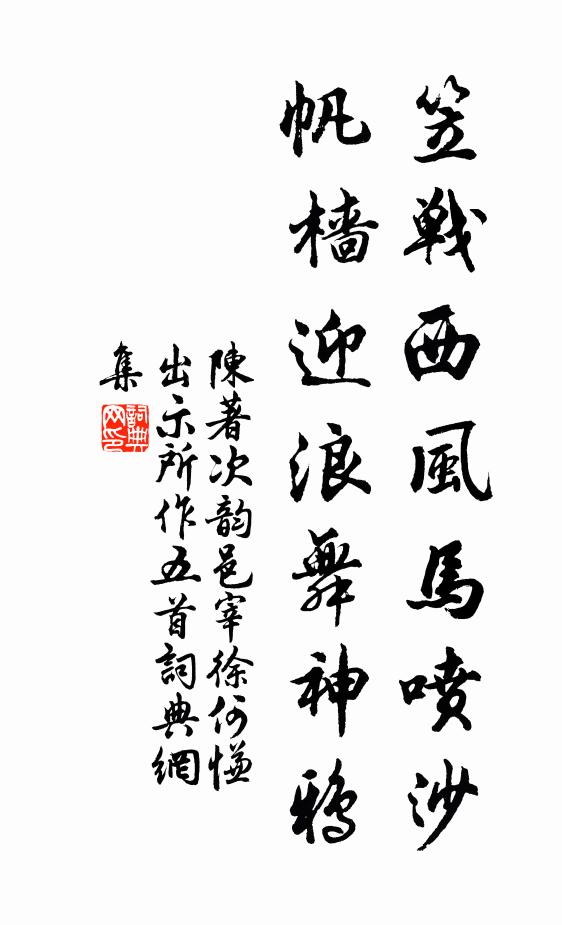 笠戰西風馬噴沙
帆檣迎浪舞神鴉
陳著次韵邑宰徐何慊
出示所作五首詞典網
集
詞典网印